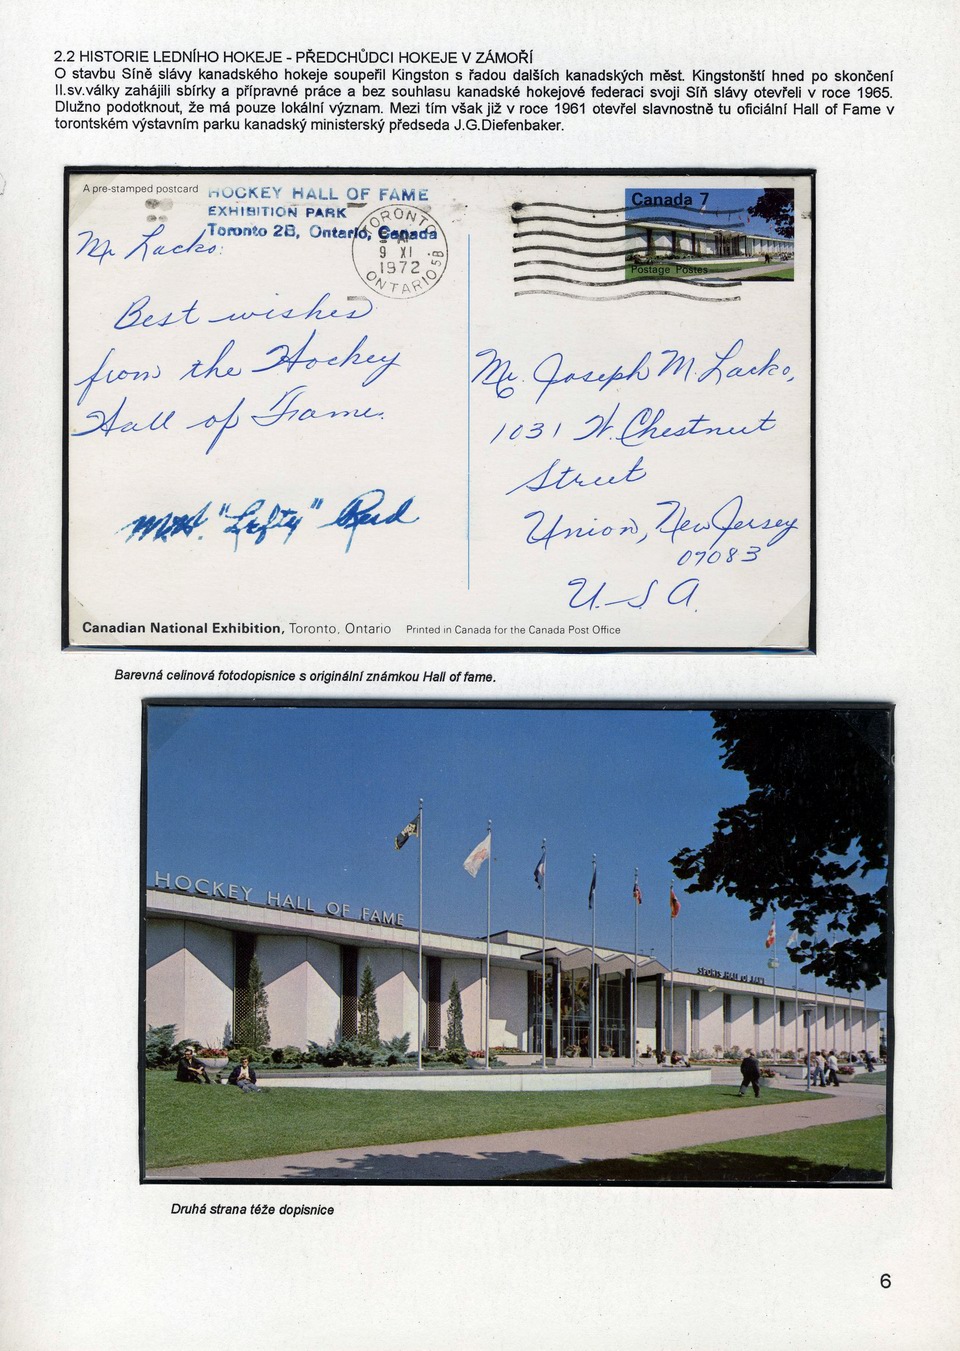 2.2 HISTORIE LEDNÍHO HOKEJE - PŘEDCHŮDCI HOKEJE V ZÁMOŘÍ
O stavbu Síně slávy kanadského hokeje soupeřil Kingston s řadou dalších kanadských měst. Kingstonští hned po skončení
II.sv.války zahájili sbírky a přípravné práce a bez souhlasu kanadské hokejové federaci svoji Síň slávy otevřeli v roce 1965.
Dlužno podotknout, že má pouze lokální význam. Mezi tím však již v roce 1961 otevřel slavnostně tu oficiální Hall of Fame v
torontském výstavním parku kanadský ministerský předseda J.G.Diefenbaker.
A pre-stamped postcard
HOCKEY HALL OF FAME
EXHIBITION PARK
Toronto 2B, Ontario, Canada
TORONTO
9 XI
1972
ONTARIO 5B
Canada 7
Postage Postes
Mr Lacko:
Best wishes
from the Hockey
Hall of Fame.
M.H. "Lefty" Reid
Mr. Joseph M. Lacko,
1031 W. Chestnut
Street
Union, New Jersey
07083
U.S.A.
Canadian National Exhibition, Toronto, Ontario Printed in Canada for the Canada Post Office
Barevná celinová fotodopisnice s originální známkou Hall of fame.
HOCKEY HALL OF FAME
SPORTS HALL OF FAME
Druhá strana téže dopisnice
6